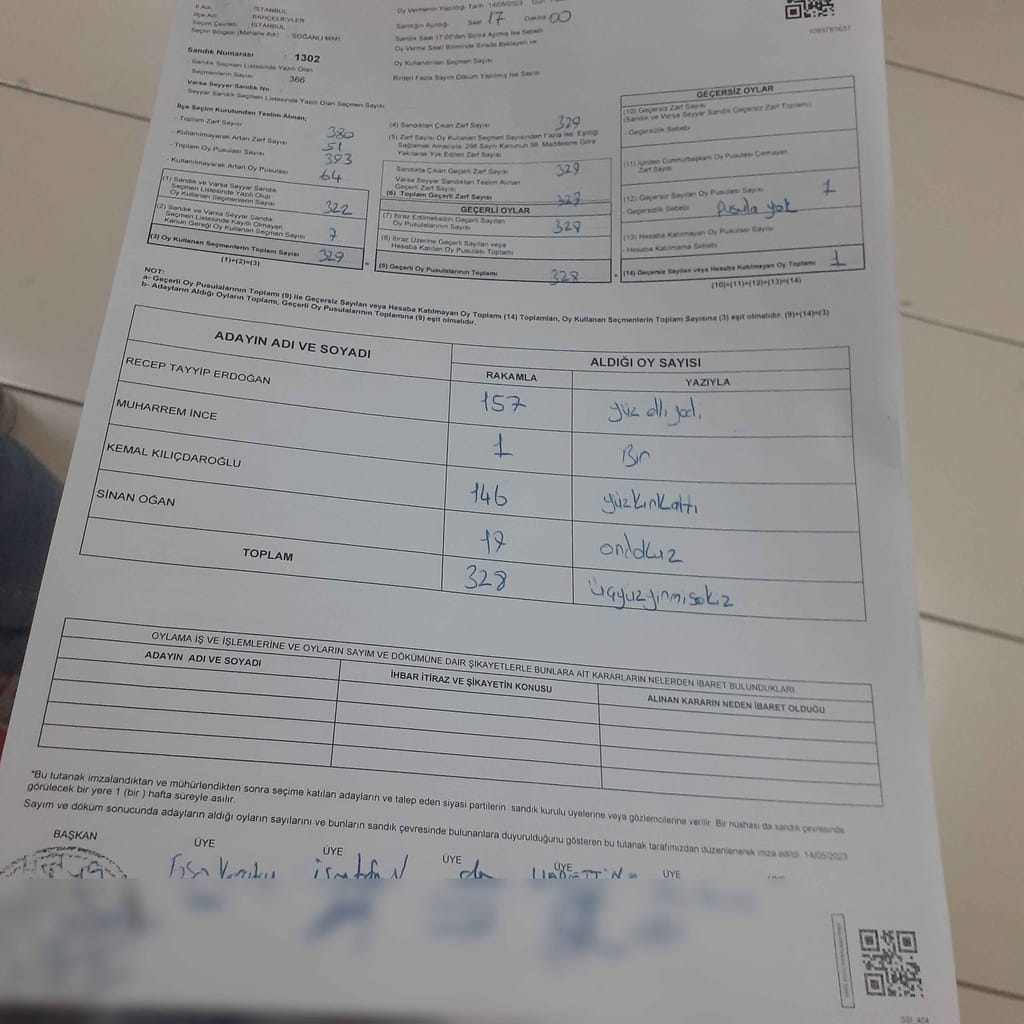 İl Adı : İSTANBUL
İlçe Adı : BAHÇELİEVLER
Seçim Çevresi : İSTANBUL
Seçim Bölgesi (Mahalle Adı) : SOĞANLI MAH.
Sandık Numarası : 1302
Sandık Seçmen Listesinde Yazılı Olan
Seçmenlerin Sayısı : 366
Varsa Seyyar Sandık No
Seyyar Sandık Seçmen Listesinde Yazılı Olan Seçmen Sayısı
Oy Vermenin Yapıldığı Tarih 14/05/2023
Sandığın Açıldığı Saat 17 Dakika 00
Sandık Saat 17:00'den Sonra Açılmış İse Sebebi
Oy Verme Saati Bitiminde Sırada Bekleyen ve
Oy Kullandırılan Seçmen Sayısı
Birden Fazla Sayım Döküm Yapılmış İse Sayısı
İlçe Seçim Kurulundan Teslim Alınan;
- Toplam Zarf Sayısı 380
- Kullanılmayarak Artan Zarf Sayısı 51
- Toplam Oy Pusulası Sayısı 393
- Kullanılmayarak Artan Oy Pusulası 64
(1) Sandık ve Varsa Seyyar Sandık
Seçmen Listesinde Yazılı Olup
Oy Kullanan Seçmenlerin Sayısı 322
(2) Sandık ve Varsa Seyyar Sandık
Seçmen Listesinde Kayıtlı Olmayan
Kanun Gereği Oy Kullanan Seçmen Sayısı 7
(3) Oy Kullanan Seçmenlerin Toplam Sayısı 329
(1)+(2)=(3)
(4) Sandıktan Çıkan Zarf Sayısı 329
(5) Zarf Sayısı Oy Kullanan Seçmen Sayısından Fazla İse, Eşitliği
Sağlamak Amacıyla, 298 Sayılı Kanunun 98. Maddesine Göre
Yakılarak Yok Edilen Zarf Sayısı
Sandıkta Çıkan Geçerli Zarf Sayısı 329
Varsa Seyyar Sandıktan Teslim Alınan
Geçerli Zarf Sayısı
(6) Toplam Geçerli Zarf Sayısı
GEÇERLİ OYLAR
(7) İtiraz Edilmeksizin Geçerli Sayılan
Oy Pusulalarının Sayısı 328
(8) İtiraz Üzerine Geçerli Sayılan veya
Hesaba Katılan Oy Pusulası Toplamı
(9) Geçerli Oy Pusulalarının Toplamı 328
GEÇERSİZ OYLAR
(10) Geçersiz Zarf Sayısı
(Sandık ve Varsa Seyyar Sandık Geçersiz Zarf Toplamı)
Geçersizlik Sebebi
(11) İçinden Cumhurbaşkanı Oy Pusulası Çıkmayan
Zarf Sayısı
(12) Geçersiz Sayılan Oy Pusulası Sayısı 1
Geçersizlik Sebebi Pusula yok
(13) Hesaba Katılmayan Oy Pusulası Sayısı
Hesaba Katılmama Sebebi
(14) Geçersiz Sayılan veya Hesaba Katılmayan Oy Toplamı 1
(10)+(11)+(12)+(13)=(14)
NOT:
a- Geçerli Oy Pusulalarının Toplamı (9) ile Geçersiz Sayılan veya Hesaba Katılmayan Oy Toplamı (14) Toplamları, Oy Kullanan Seçmenlerin Toplam Sayısına (3) eşit olmalıdır. (9)+(14)=(3)
b- Adayların Aldığı Oyların Toplamı, Geçerli Oy Pusulalarının Toplamına (9) eşit olmalıdır.
ADAYIN ADI VE SOYADI ALDIĞI OY SAYISI
RAKAMLA YAZIYLA
RECEP TAYYİP ERDOĞAN 157 yüz elli yedi
MUHARREM İNCE 1 Bir
KEMAL KILIÇDAROĞLU 146 yüzkırkaltı
SİNAN OĞAN ondokuz
TOPLAM 328 üçyüzyirmisekiz
OYLAMA İŞ VE İŞLEMLERİNE VE OYLARIN SAYIM VE DÖKÜMÜNE DAİR ŞİKAYETLERLE BUNLARA AİT KARARLARIN NELERDEN İBARET BULUNDUKLARI
ADAYIN ADI VE SOYADI İHBAR İTİRAZ VE ŞİKAYETİN KONUSU ALINAN KARARIN NEDEN İBARET OLDUĞU
*Bu tutanak imzalandıktan ve mühürlendikten sonra seçime katılan adayların ve talep eden siyasi partilerin sandık kurulu üyelerine veya gözlemcilerine verilir. Bir nüshası da sandık çevresinde
görülecek bir yere 1 (bir ) hafta süreyle asılır.
Sayım ve döküm sonucunda adayların aldığı oyların sayılarını ve bunların sandık çevresinde bulunanlara duyurulduğunu gösteren bu tutanak tarafımızdan düzenlenerek imza edildi. 14/05/2023
BAŞKAN ÜYE ÜYE ÜYE ÜYE ÜYE